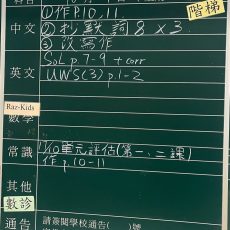 ①作P.10,11
階梯
中文 ②抄默詞8×3
③改寫作
SoL p.7-9 + corr
英文 UWS(3) p.1-2
Raz-Kids
數學
常識 11/10單元評估(第一、二課)
作p.10-11
其他
數診
通告 請簽閱學校通告( )號